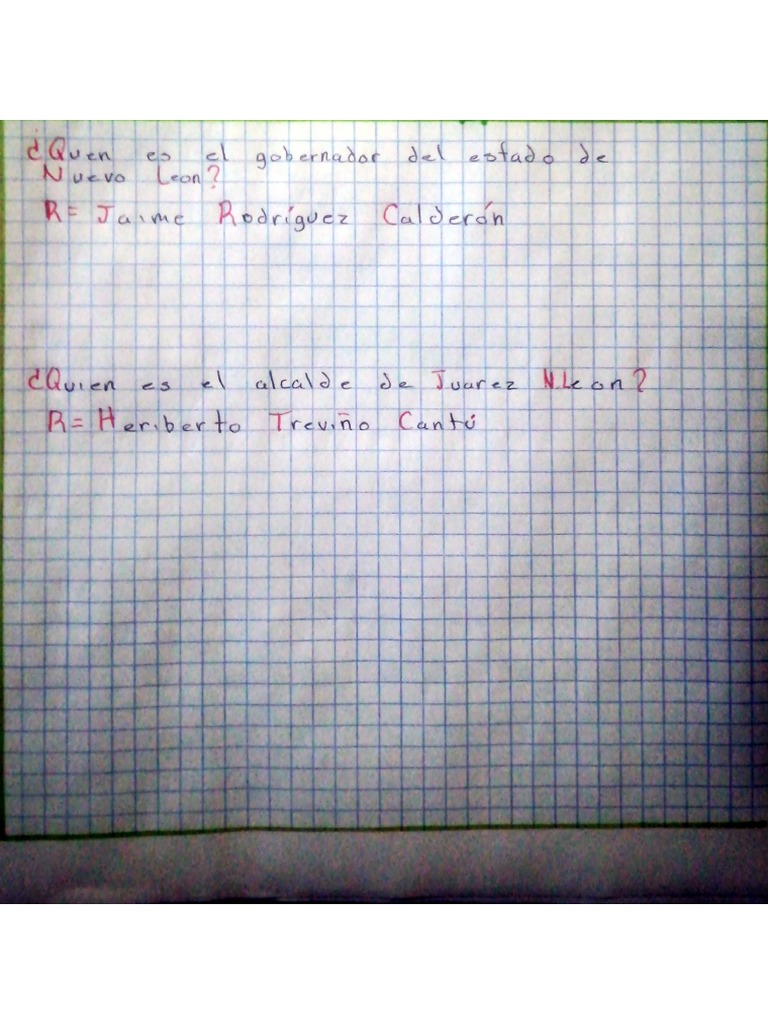 ¿Quen es el gobernador del estado de
Nuevo Leon?
R= Jaime Rodríguez Calderón
¿Quien es el alcalde de Juarez N.Leon?
R= Heriberto Treviño Cantú